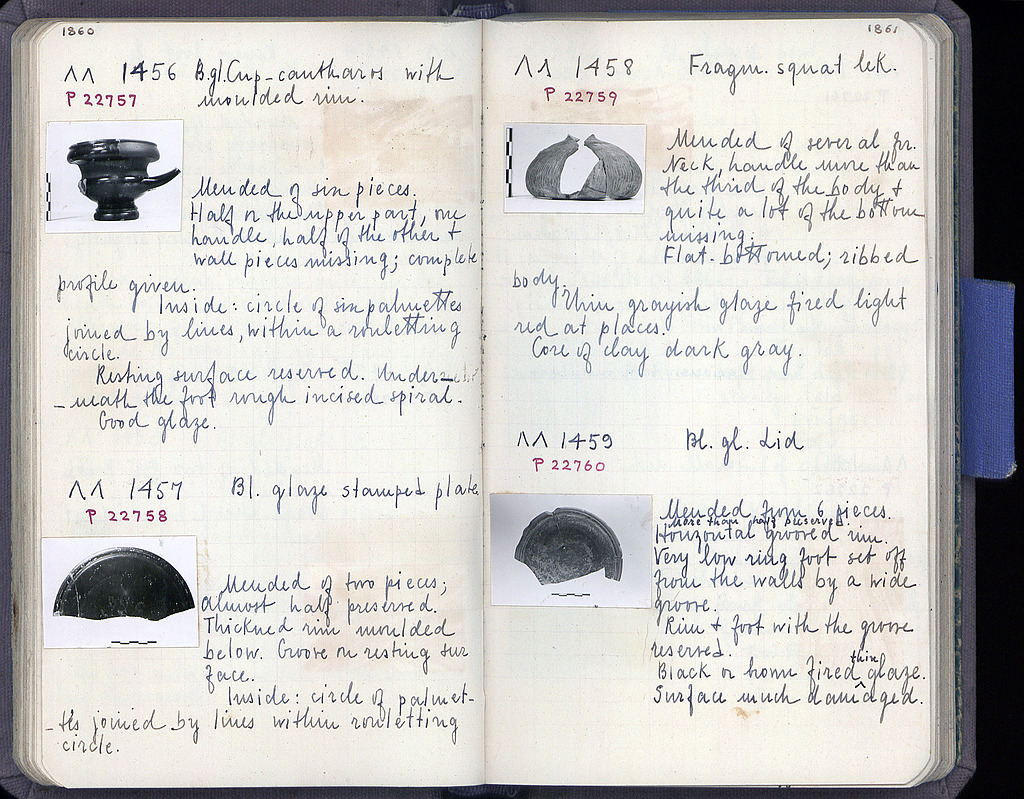 1860
ΛΛ 1456 B.gl. Cup-cantharos with
P 22757 moulded rim.
Mended of six pieces.
Half on the upper part, one
handle, half of the other +
wall pieces missing; complete
profile given.
Inside: circle of six palmettes
joined by lines, within a rouletting
circle.
Resting surface reserved. Under-
-neath the foot rough incised spiral.
Good glaze.
ΛΛ 1457 Bl. glaze stamped plate
P 22758
Mended of two pieces;
almost half preserved.
Thickned rim moulded
below. Groove on resting sur
face.
Inside: circle of palmet-
-tes joined by lines within rouletting
circle.
1861
ΛΛ 1458 Fragm. squat lek.
P 22759
Mended of several fr.
Neck, handle more than
the third of the body +
quite a lot of the bottom
missing.
Flat-bottomed; ribbed
body.
Thin grayish glaze fired light
red at places.
Core of clay dark gray.
ΛΛ 1459 Bl. gl. Lid
P 22760
Mended from 6 pieces.
More than half preserved.
Horizontal grooved rim.
Very low ring foot set off
from the walls by a wide
groove.
Rim + foot with the groove
reserved.
Black or brown fired thin glaze.
Surface much damaged.